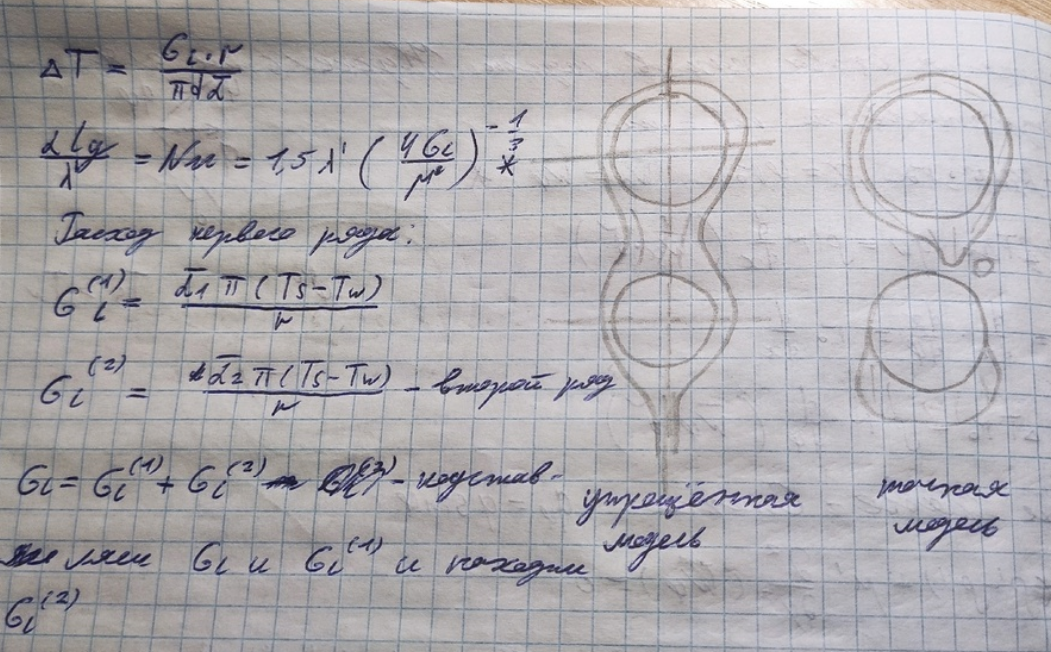 ΔT = Gᵢ·r / πdα̅
αlg / λ = Nu = 1,5 λ' (4Gᵢ / μ)^(-1/3) *
Расход первого ряда:
Gᵢ⁽¹⁾ = α̅₁ π (Ts - Tw) / r
Gᵢ⁽²⁾ = α̅₂ π (Ts - Tw) / r - второй ряд
Gᵢ = Gᵢ⁽¹⁾ + Gᵢ⁽²⁾ - подстав-
ляем Gᵢ и Gᵢ⁽¹⁾ и находим
Gᵢ⁽²⁾
упрощённая
модель
точная
модель